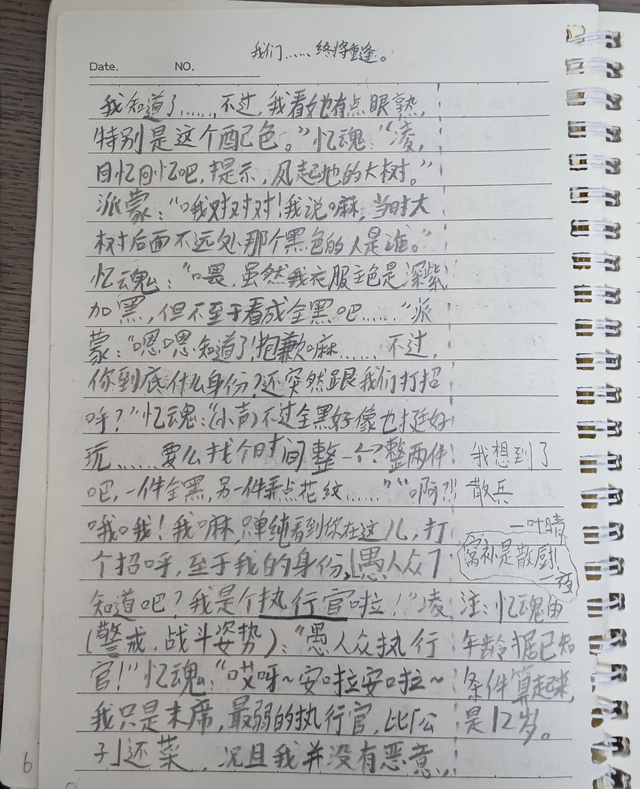 我们……终将重逢。
Date. NO.
我知道了……，不过，我看她有点眼熟，
特别是这个配色。”忆魂：“凌，
回忆回忆吧，提示，风起地的大树。”
派蒙：“哦对对对！我说嘛，当时大
树后面不远处那个黑色的人是谁。”
忆魂：“喂，虽然我衣服主色是深紫
加黑，但不至于看成全黑吧……”派
蒙：“嗯嗯知道了！抱歉嘛……不过，
你到底什么身份？还突然跟我们打招
呼？”忆魂：“（小声）不过全黑好像也挺好
玩……要么找个时间整一个？整两件
吧，一件全黑，另一件弄点花纹……”“啊？！
哦哦！我嘛，单纯看到你在这儿，打
个招呼，至于我的身份，愚人众
知道吧？我是个执行官啦！”凌
（警戒，战斗姿势）：“愚人众执行
官！”忆魂：“哎呀~安啦安啦~
我只是末席，最弱的执行官，比「公
子」还菜，况且我并没有恶意，
我想到了
散兵
—叶晴
注：忆魂由
年龄据已知
条件算起来，
是12岁。
6